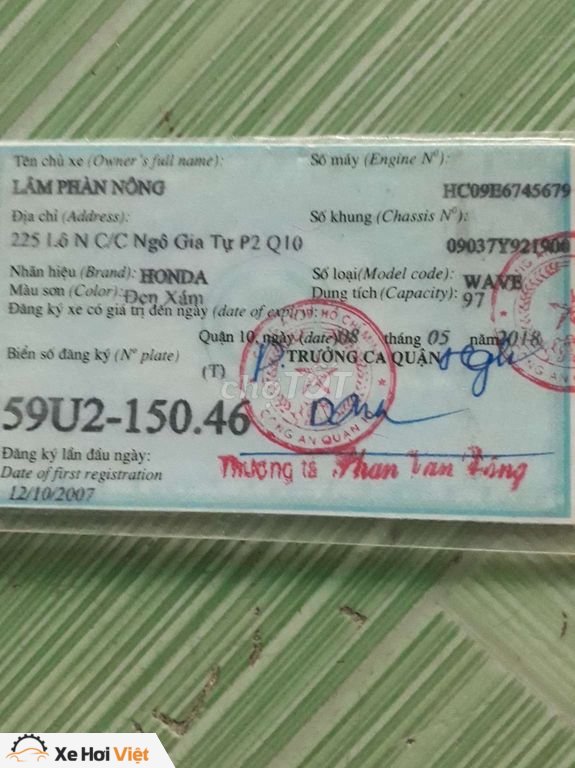 Tên chủ xe (Owner's full name):
LÂM PHÀN NÔNG
Số máy (Engine Nº):
HC09E6745679
Địa chỉ (Address):
225 Lô N C/C Ngô Gia Tự P2 Q10
Số khung (Chassis Nº):
09037Y921900
Nhãn hiệu (Brand): HONDA
Số loại(Model code): WAVE
Màu sơn (Color): Đen Xám
Dung tích (Capacity): 97
Đăng ký xe có giá trị đến ngày (date of expiry):
Quận 10, ngày (date) 08 tháng 05 năm 2018
Biển số đăng ký (Nº plate)
(T)
TRƯỞNG CA QUẬN
59U2-150.46
choTỐT
CÔNG AN QUẬN
Đăng ký lần đầu ngày:
Date of first registration
12/10/2007
Thượng tá Phan Văn
Xe Hơi Việt